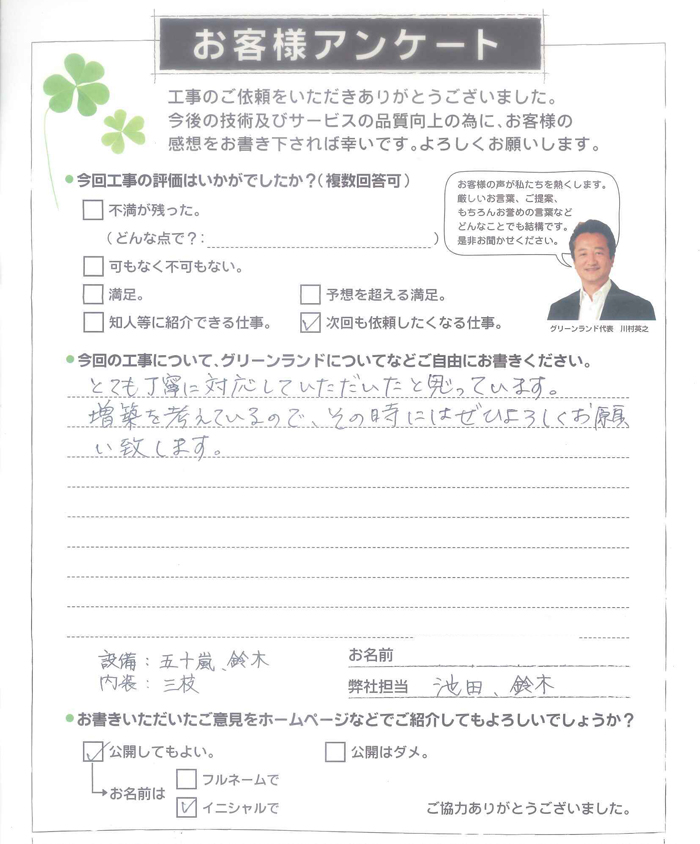 お客様アンケート
工事のご依頼をいただきありがとうございました。
今後の技術及びサービスの品質向上の為に、お客様の
感想をお書き下されば幸いです。よろしくお願いします。
今回工事の評価はいかがでしたか?(複数回答可)
不満が残った。
(どんな点で?: )
可もなく不可もない。
満足。
予想を超える満足。
知人等に紹介できる仕事。
次回も依頼したくなる仕事。
お客様の声が私たちを熱くします。
厳しいお言葉、ご提案、
もちろんお誉めの言葉など
どんなことでも結構です。
是非お聞かせください。
グリーンランド代表 川村英之
今回の工事について、グリーンランドについてなどご自由にお書きください。
とても丁寧に対応していただいたと思っています。
増築を考えているので、その時にはぜひよろしくお願
い致します。
設備:五十嵐、鈴木
内装:三枝
お名前
弊社担当 池田、鈴木
お書きいただいたご意見をホームページなどでご紹介してもよろしいでしょうか?
公開してもよい。
公開はダメ。
お名前は
フルネームで
イニシャルで
ご協力ありがとうございました。